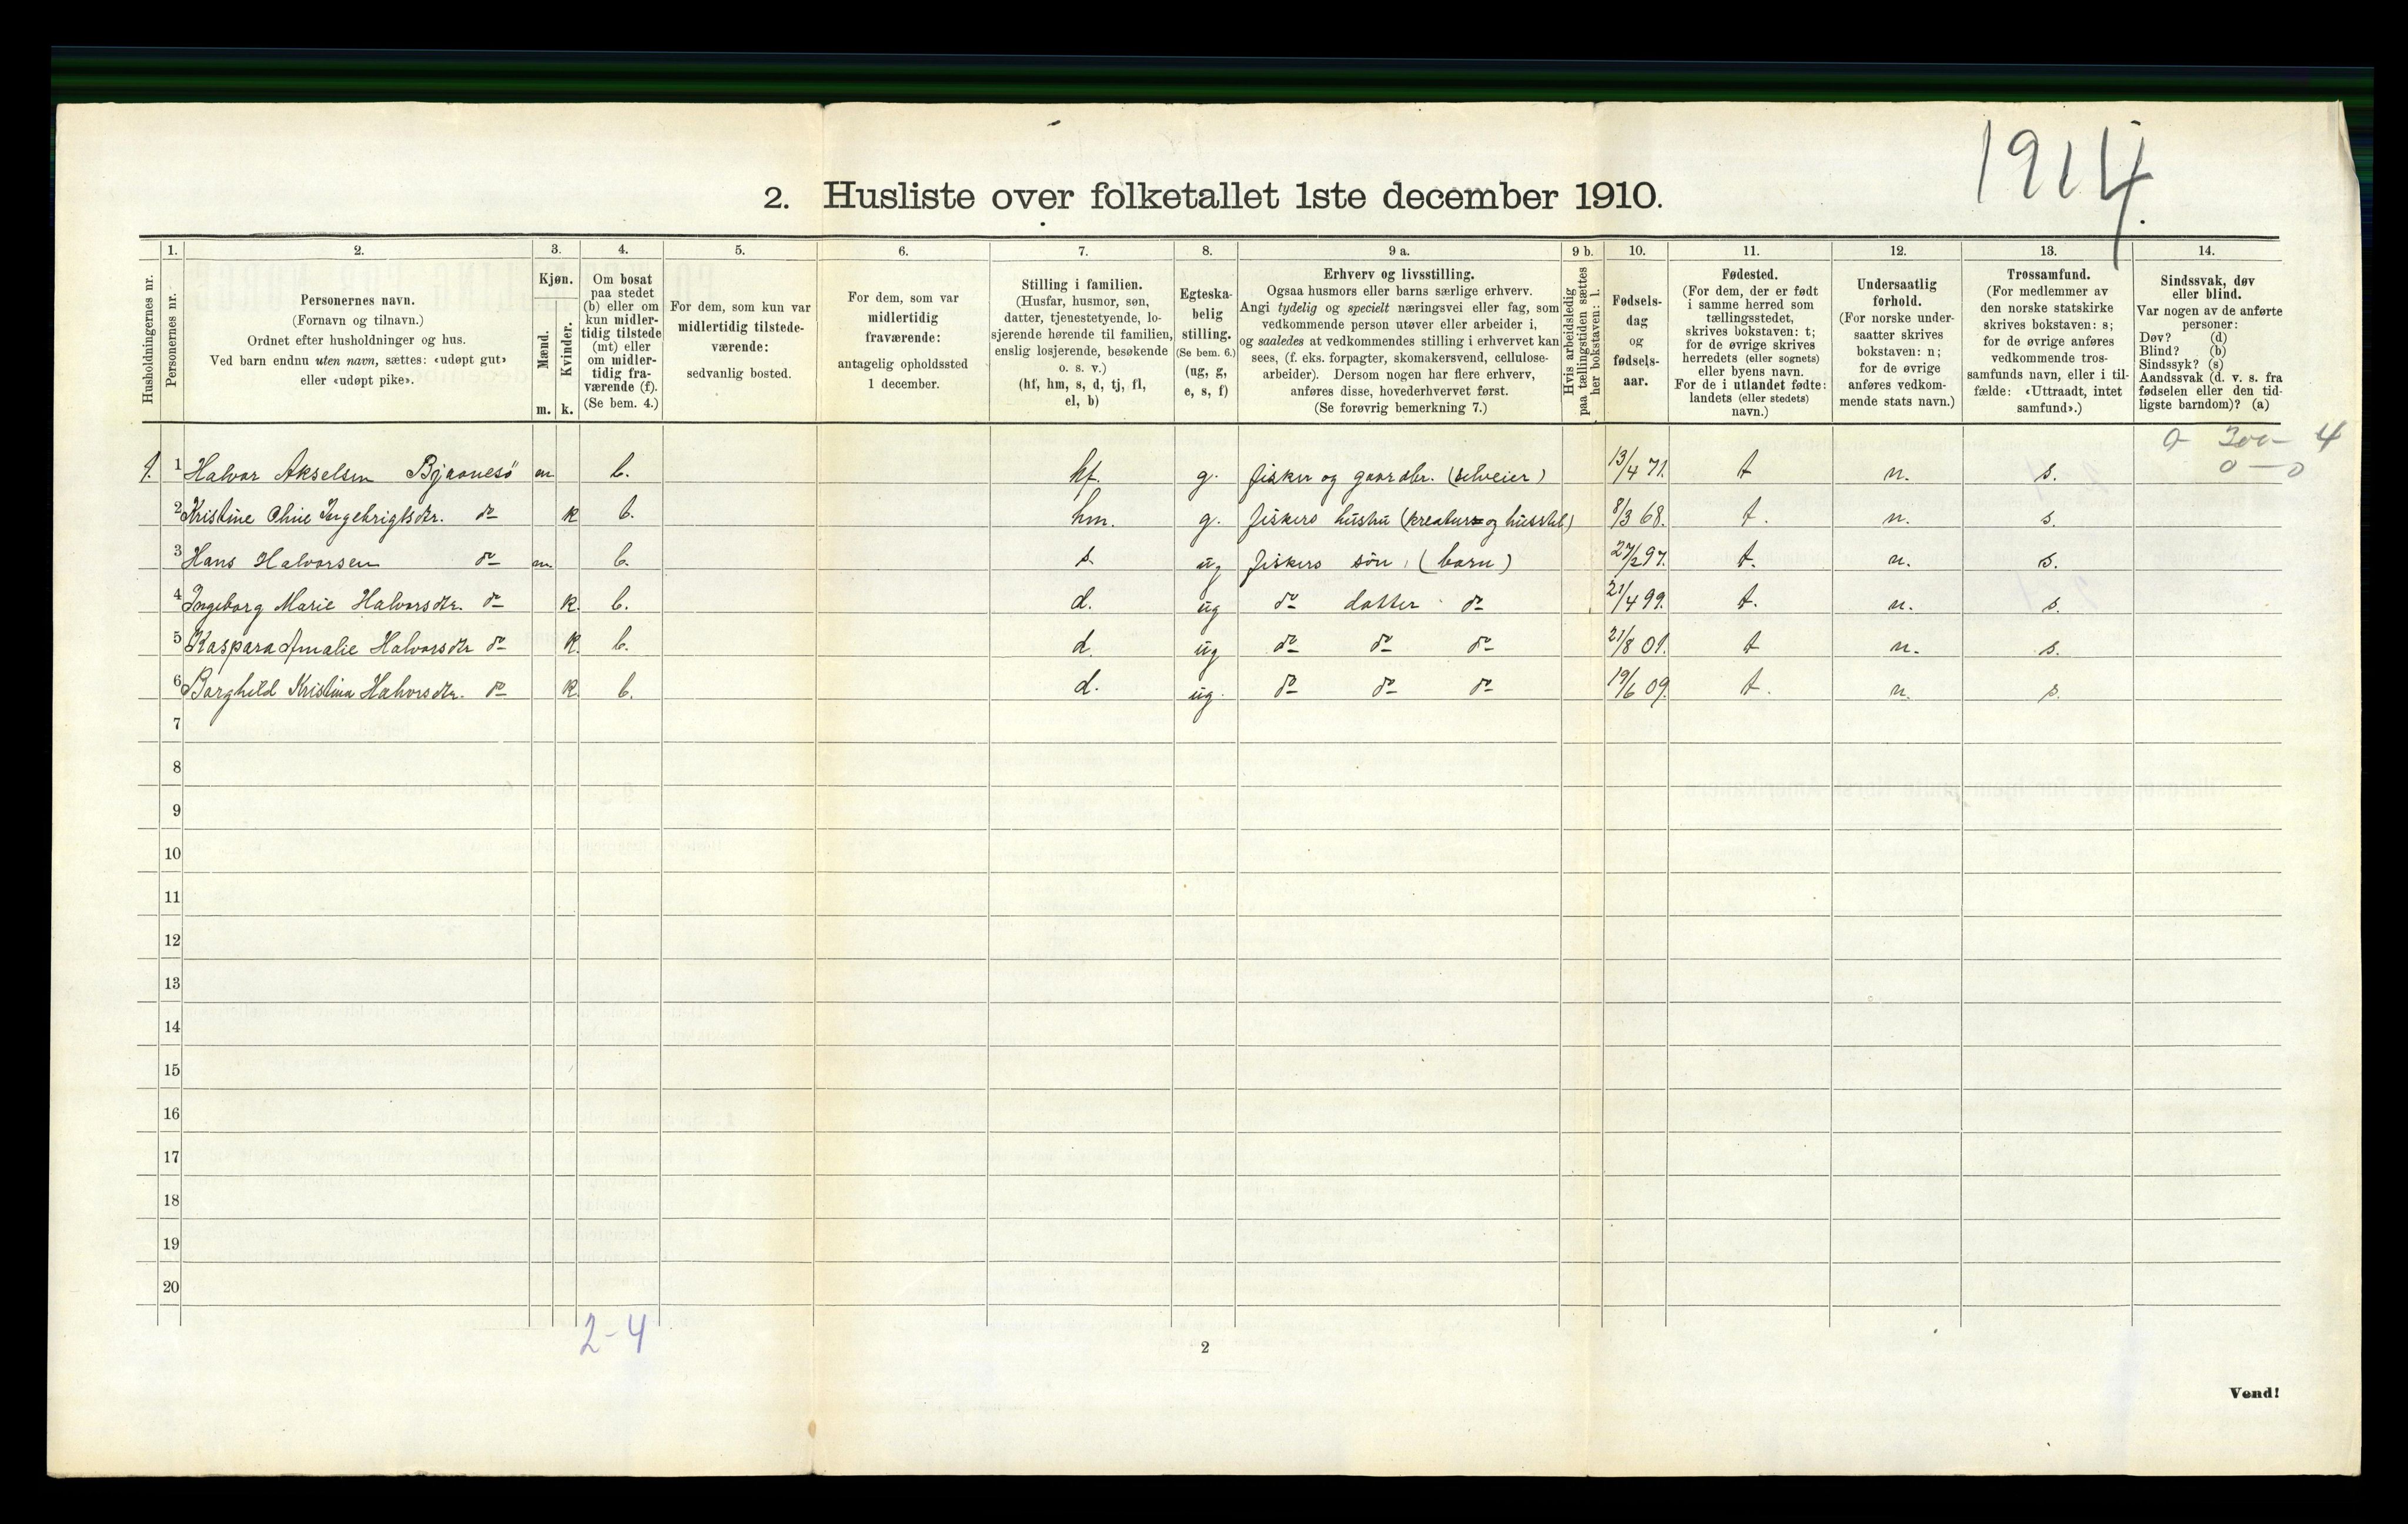 1914.
2. Husliste over folketallet 1ste december 1910.
Husholdningernes nr.
1.
Personernes nr.
2.
Personernes navn.
(Fornavn og tilnavn.)
Ordnet efter husholdninger og hus.
Ved barn endnu uten navn, sættes: «udøpt gut»
eller «udøpt pike».
3.
Kjøn.
Mænd.
Kvinder.
m. k.
4.
Om bosat
paa stedet
(b) eller om
kun midler-
tidig tilstede
(mt) eller
om midler-
tidig fra-
værende (f).
(Se bem. 4.)
5.
For dem, som kun var
midlertidig tilstede-
værende:
sedvanlig bosted.
6.
For dem, som var
midlertidig
fraværende:
antagelig opholdssted
1 december.
7.
Stilling i familien.
(Husfar, husmor, søn,
datter, tjenestetyende, lo-
sjerende hørende til familien,
enslig losjerende, besøkende
o. s. v.)
(hf, hm, s, d, tj, fl,
el, b)
8.
Egteska-
belig
stilling.
(Se bem. 6.)
(ug, g,
e, s, f)
9 a.
Erhverv og livsstilling.
Ogsaa husmors eller barns særlige erhverv.
Angi tydelig og specielt næringsvei eller fag, som
vedkommende person utøver eller arbeider i,
og saaledes at vedkommendes stilling i erhvervet kan
sees, (f. eks. forpagter, skomakersvend, cellulose-
arbeider). Dersom nogen har flere erhverv,
anføres disse, hovederhvervet først.
(Se forøvrig bemerkning 7.)
9 b.
Hvis arbeidsledig
paa tællingstiden sættes
her bokstaven: l.
10.
Fødsels-
dag
og
fødsels-
aar.
11.
Fødested.
(For dem, der er født
i samme herred som
tællingsstedet,
skrives bokstaven: t;
for de øvrige skrives
herredets (eller sognets)
eller byens navn.
For de i utlandet fødte:
landets (eller stedets)
navn.)
12.
Undersaatlig
forhold.
(For norske under-
saatter skrives
bokstaven: n;
for de øvrige
anføres vedkom-
mende stats navn.)
13.
Trossamfund.
(For medlemmer av
den norske statskirke
skrives bokstaven: s;
for de øvrige anføres
vedkommende tros-
samfunds navn, eller i til-
fælde: «Uttraadt, intet
samfund».)
14.
Sindssvak, døv
eller blind.
Var nogen av de anførte
personer:
Døv? (d)
Blind? (b)
Sindssyk? (s)
Aandssvak (d. v. s. fra
fødselen eller den tid-
ligste barndom)? (a)
0 - 300 - 4
0 - 0
1. 1 Halvor Akselsen Bjaanesö m b. hf. g. fisker og gaardbr. (selveier) 13/4 71. t n. s.
2 Kristine Oline Ingebrigtsdtr. do k b. hm. g. fiskers hustru (kreatur= og husstel) 8/3 68. t. n. s.
3 Hans Halvorsen do m b. s. ug fiskers søn, (barn) 27/2 97. t. n. s.
4 Ingeborg Marie Halvorsdtr. do k. b. d. ug do datter do 21/4 99. t. n. s.
5 Kaspara Amalie Halvorsdtr do k. b. d. ug do do do 21/8 01. t n. s.
6 Borghild Kristina Halvorsdtr. do k. b. d. ug. do do do 19/6 09. t. n. s.
7
8
9
10
11
12
13
14
15
16
17
18
19
20
2-4
2
Vend!